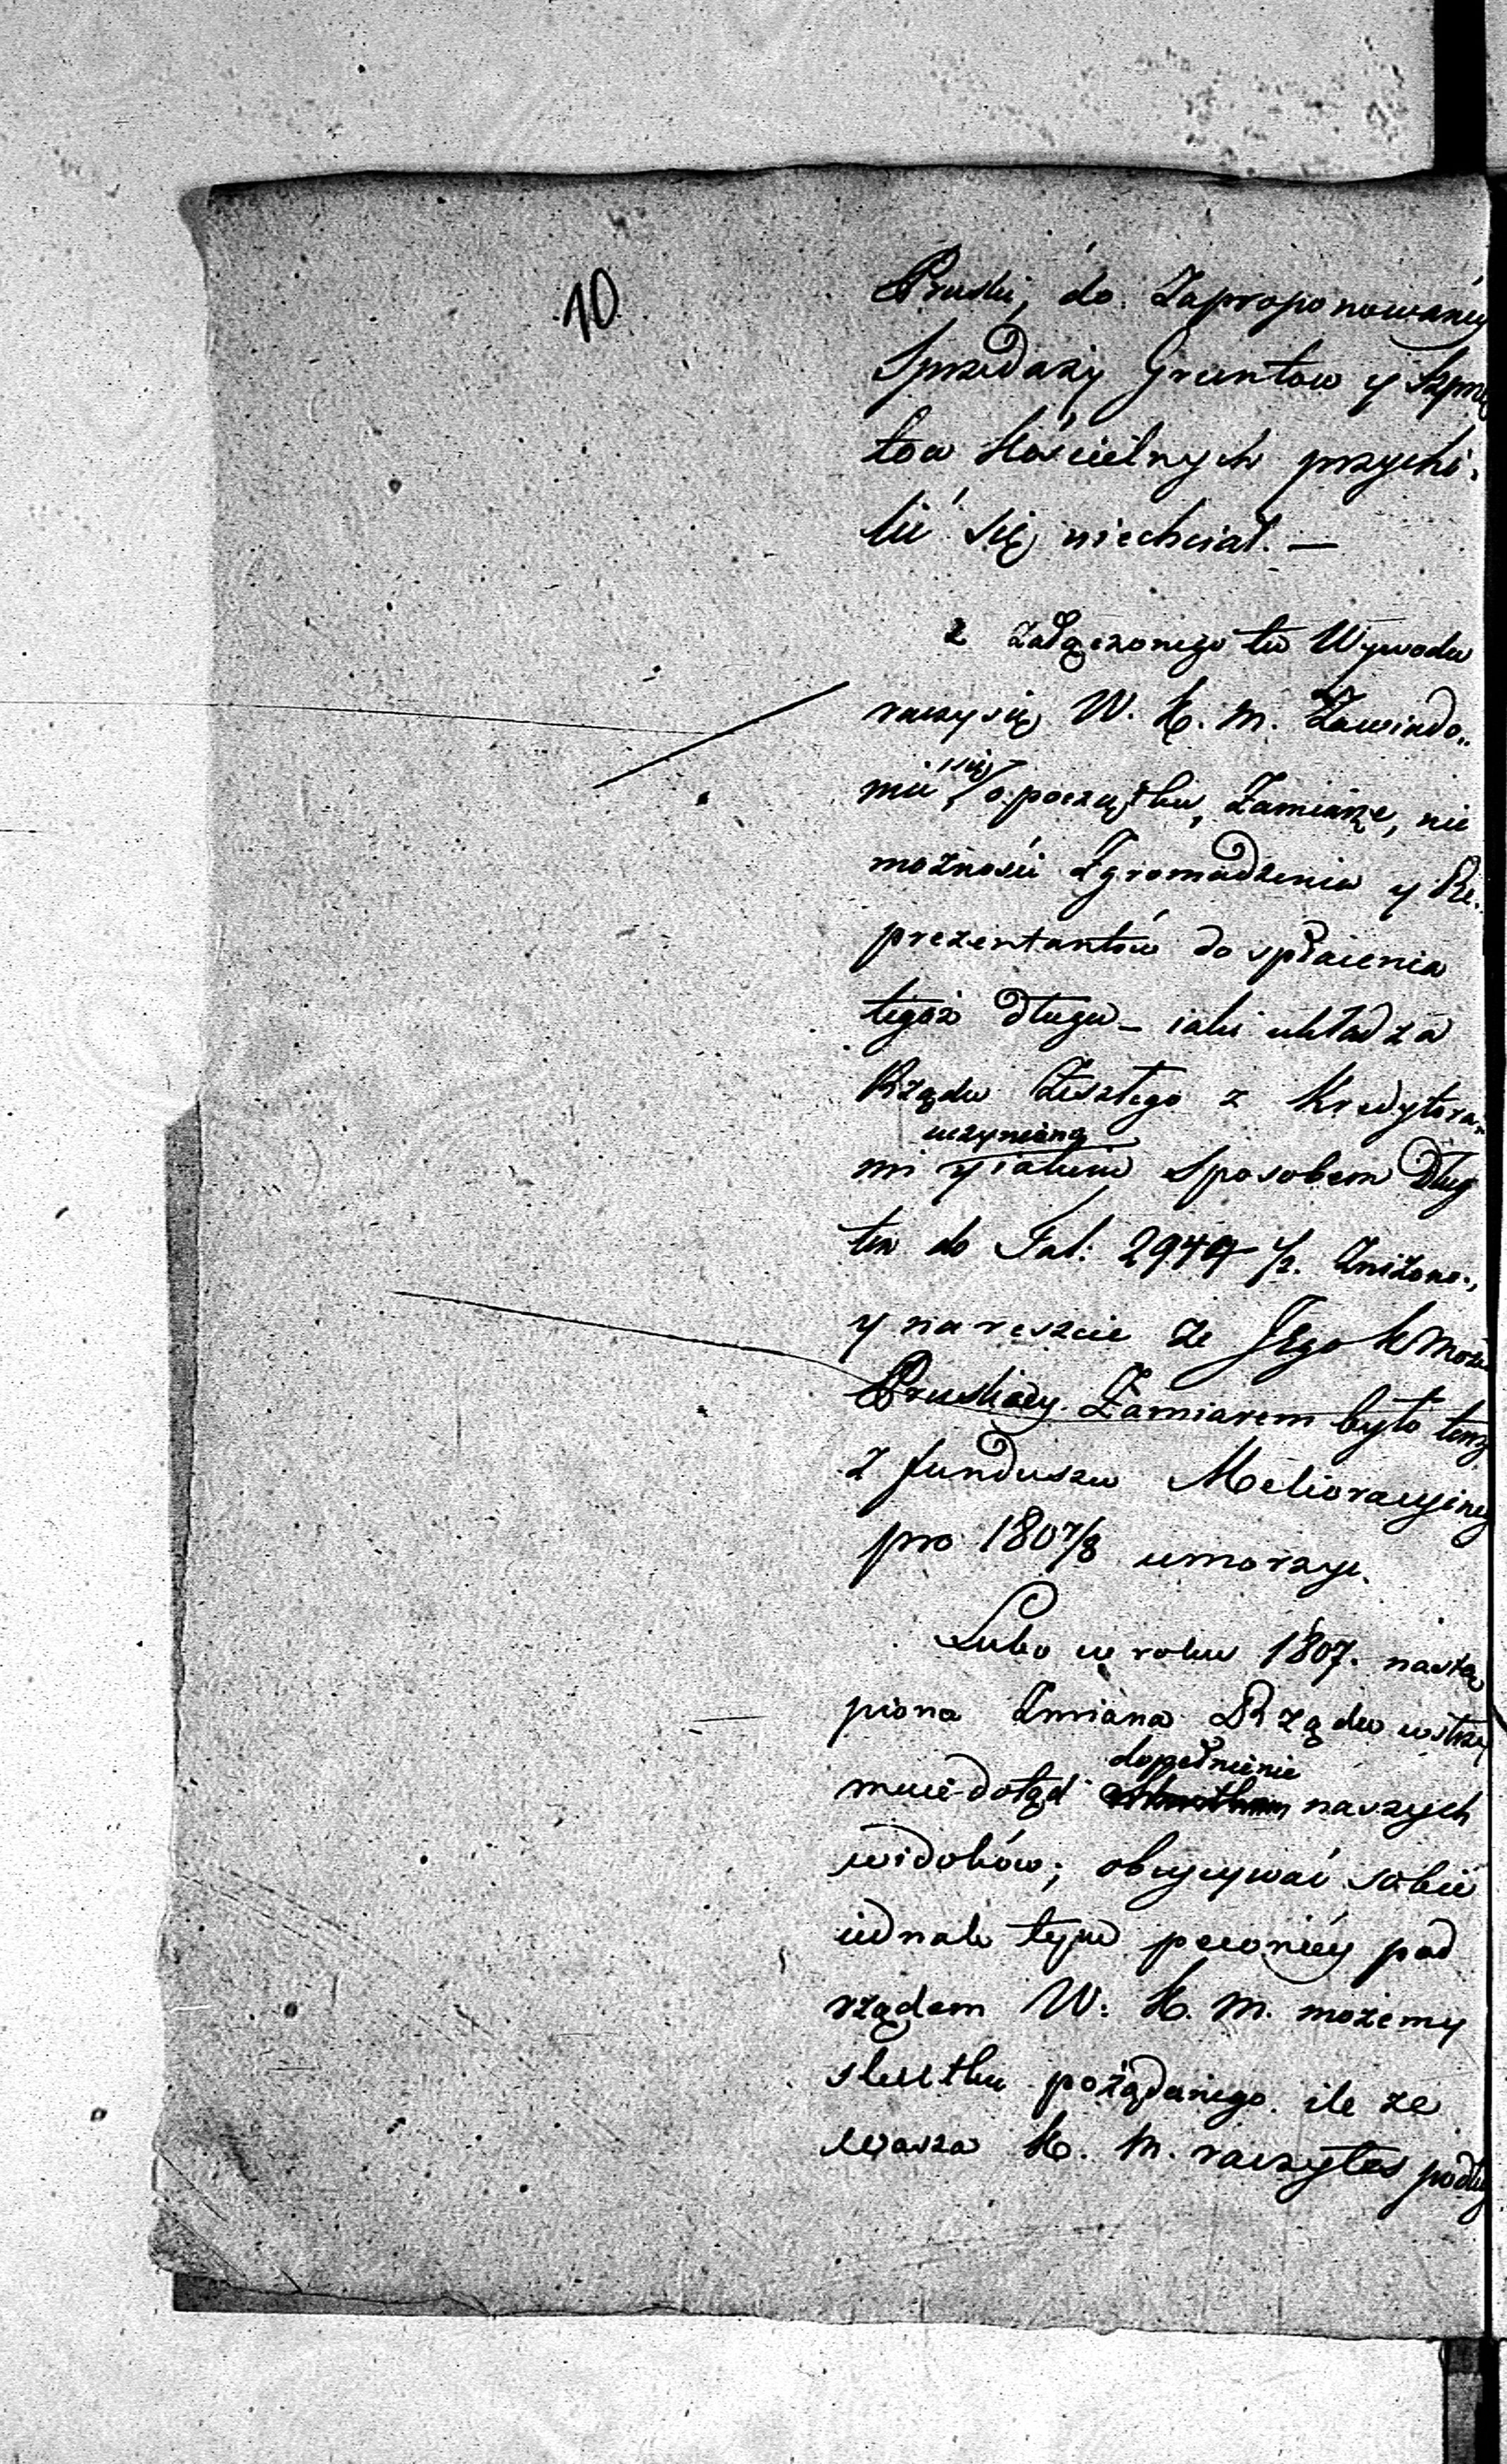 10
Pruski, do Zaproponowaney
Sprzedaży Gruntow y Sprzę
tow Kościelnych przychi:
lić się niechciał. —
z Załączonego tu Wywodu
raczy się W. K. M. Zawiado„
mić się o początku, Zamiarze, nie
możności Zgromadzenia y Re.
prezentantów do spłacenia
tegoż długu — iaki układ za
Rządu Zeszłego z Kredytora„
uczyniono
mi y iakim Sposobem Dług
ten do Tal: 2944 Zniżono.,
y nareszcie że Jego K Mości
Pruskiey Zamiarem było tenż
z funduszu Melioracyiney
pro 1807/8 umorzyc.
Lubo w roku 1807. nastą
piona Zmiana Rządu wstrzy
dopełnienie
muie dotąd naszych
widoków; obiecywać sobie
iednak tym pewniey pod
rządem W. K. M. możemy
skutku pożądanego. ile że
Wasza K. M. raczyłes podług